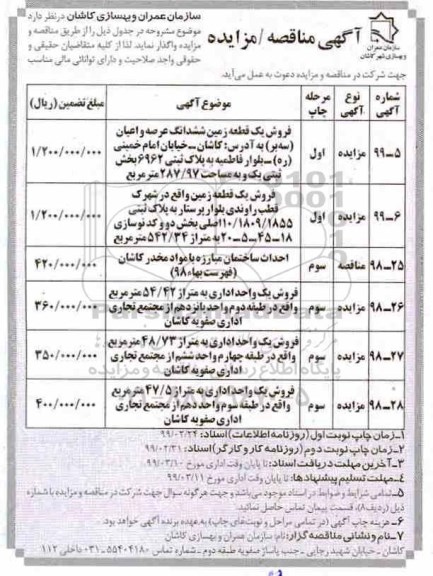 آگهی مناقصه /مزایده
سازمان عمران
و بهسازی شهر کاشان
سازمان عمران و بهسازی کاشان در نظر دارد
موضوع مشروحه در جدول ذیل را از طریق مناقصه و
مزایده واگذار نماید. لذا از کلیه متقاضیان حقیقی و
حقوقی واجد صلاحیت و دارای توانائی مالی مناسب
جهت شرکت در مناقصه و مزایده دعوت به عمل می‌آید.
شماره آگهی | نوع آگهی | مرحله چاپ | موضوع آگهی | مبلغ تضمین (ریال)
۵-۹۹ | مزایده | اول | فروش یک قطعه زمین ششدانگ عرصه و اعیان
(سه‌بر) به آدرس: کاشان-خیابان امام خمینی
(ره)-بلوار فاطمیه به پلاک ثبتی ۶۹۶۲ بخش
ثبتی یک و به مساحت ۲۸۷/۹۷ مترمربع | ۱/۲۰۰/۰۰۰/۰۰۰
۶-۹۹ | مزایده | اول | فروش یک قطعه زمین واقع در شهرک
قطب راوندی بلوار پرستار به پلاک ثبتی
۱۰/۱۸۰۹/۱۸۵۵ اصلی بخش دو و کد نوسازی
۱۸-۴۵-۵-۲۰ به متراژ ۵۴۲/۳۴ مترمربع | ۱/۲۰۰/۰۰۰/۰۰۰
۲۵-۹۸ | مناقصه | سوم | احداث ساختمان مبارزه با مواد مخدر کاشان
(فهرست بهاء ۹۸) | ۴۲۰/۰۰۰/۰۰۰
۲۶-۹۸ | مزایده | سوم | فروش یک واحد اداری به متراژ ۵۴/۴۲ مترمربع
واقع در طبقه دوم واحد پانزدهم از مجتمع تجاری
اداری صفویه کاشان | ۳۶۰/۰۰۰/۰۰۰
۲۷-۹۸ | مزایده | سوم | فروش یک واحد اداری به متراژ ۴۸/۷۳ مترمربع
واقع در طبقه چهارم واحد ششم از مجتمع تجاری
اداری صفویه کاشان | ۳۵۰/۰۰۰/۰۰۰
۲۸-۹۸ | مزایده | سوم | فروش یک واحد اداری به متراژ ۴۷/۵ مترمربع
واقع در طبقه سوم واحد دهم از مجتمع تجاری
اداری صفویه کاشان | ۴۰۰/۰۰۰/۰۰۰
۱-زمان چاپ نوبت اول (روزنامه اطلاعات) اسناد: ۹۹/۰۲/۲۴
۲-زمان چاپ نوبت دوم (روزنامه کار و کارگر) اسناد: ۹۹/۰۲/۳۱
۳-آخرین مهلت دریافت اسناد: تا پایان وقت اداری مورخ ۹۹/۰۳/۱۰
۴-مهلت تسلیم پیشنهادها: تا پایان وقت اداری مورخ ۹۹/۰۳/۱۱
۵-تمامی شرایط و ضوابط در اسناد موجود می‌باشد و جهت هرگونه سوال جهت شرکت در مناقصه و مزایده با شماره
ذیل (ردیف۸)، قسمت پیمان تماس حاصل نمائید.
۶- هزینه چاپ آگهی (در تمامی مراحل و نوبت‌های چاپ) به عهده برنده آگهی خواهد بود.
۷-نام و نشانی مناقصه گزار: نام: سازمان عمران و بهسازی کاشان
کاشان-خیابان شهید رجایی-جنب پاساژ صفویه طبقه دوم-شماره تماس ۵۵۴۰۴۱۸۰-۰۳۱ داخلی ۱۱۲